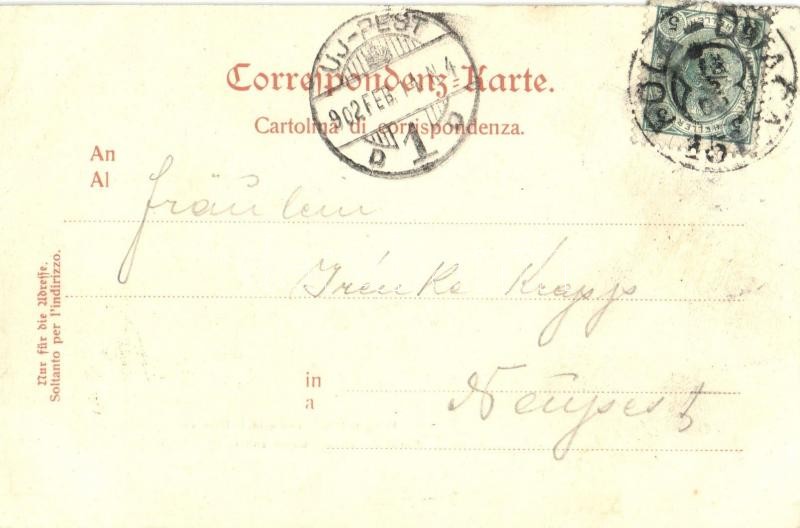 UJ-PEST
902 FEB. N. 4
D 1 D
5 5
POLA
Correspondenz-Karte.
Cartolina di corrispondenza.
An
Al
Fräulein
Irénke Krapp
in
a
Neupest
Nur für die Adresse.
Soltanto per l'indirizzo.